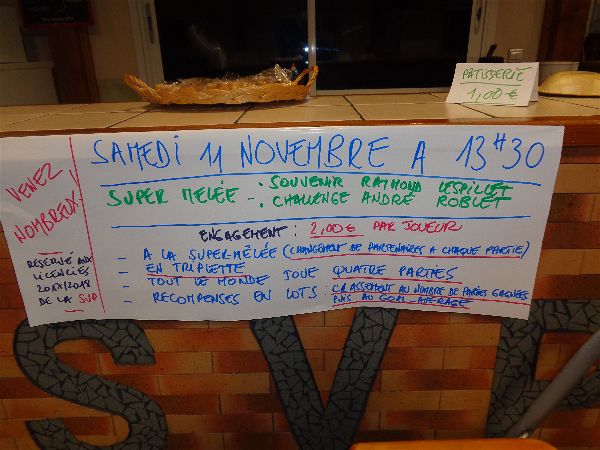 PATISSERIE
1,00 €
SAMEDI 11 NOVEMBRE A 13H30
SUPER MELÉE -: SOUVENIR RAYMOND LESPILLET
-: CHALLENGE ANDRÉ ROBLET
ENGAGEMENT : 2,00€ PAR JOUEUR
- A LA SUPER-MÊLÉE (CHANGEMENT DE PARTENAIRES A CHAQUE PARTIE)
- EN TRIPLETTE
- TOUT LE MONDE JOUE QUATRE PARTIES
- RECOMPENSES EN LOTS : CLASSEMENT AU NOMBRE DE PARTIES GAGNÉES
PUIS AU GOAL AVERAGE
VENEZ
NOMBREUX
RESERVÉ AUX
LICENCIÉS
2017/2018
DE LA SVP
SVP